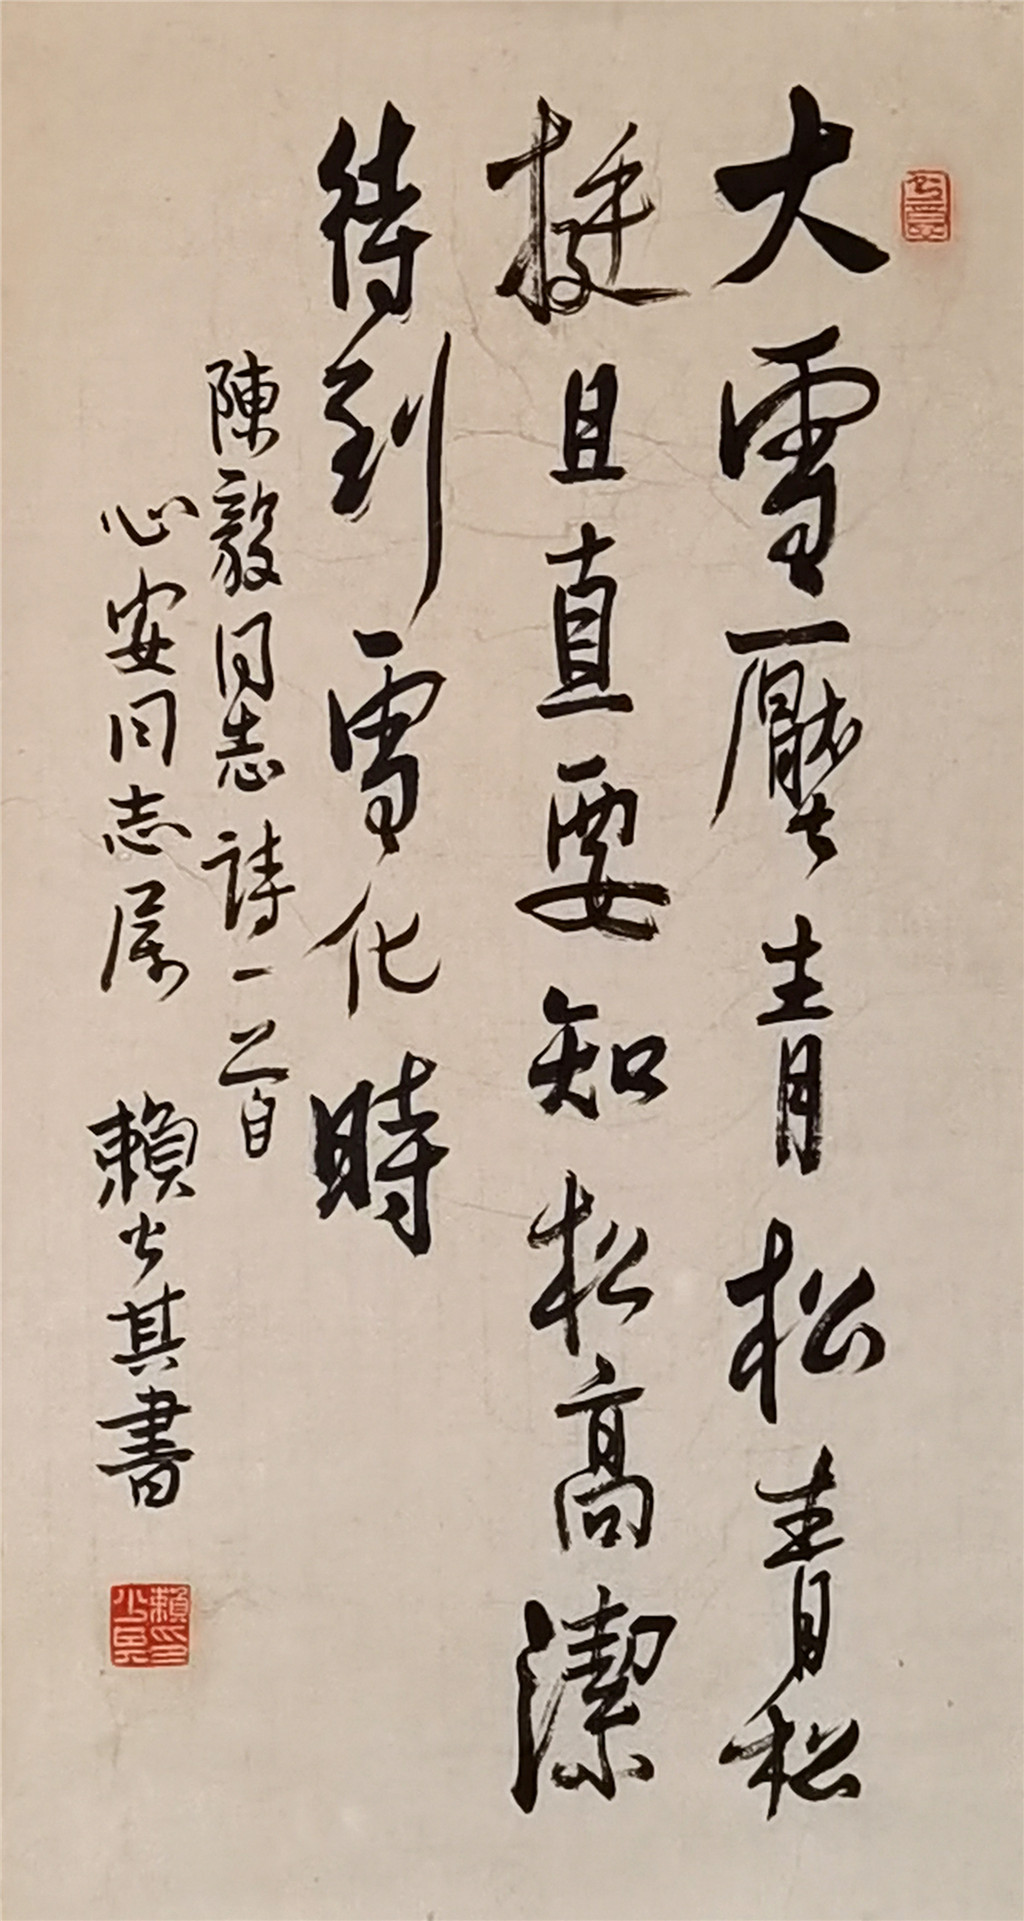 大雪壓青松青松
挺且直要知松高潔
待到雪化時
陳毅同志詩一首
心安同志属 賴少其書
賴少其印